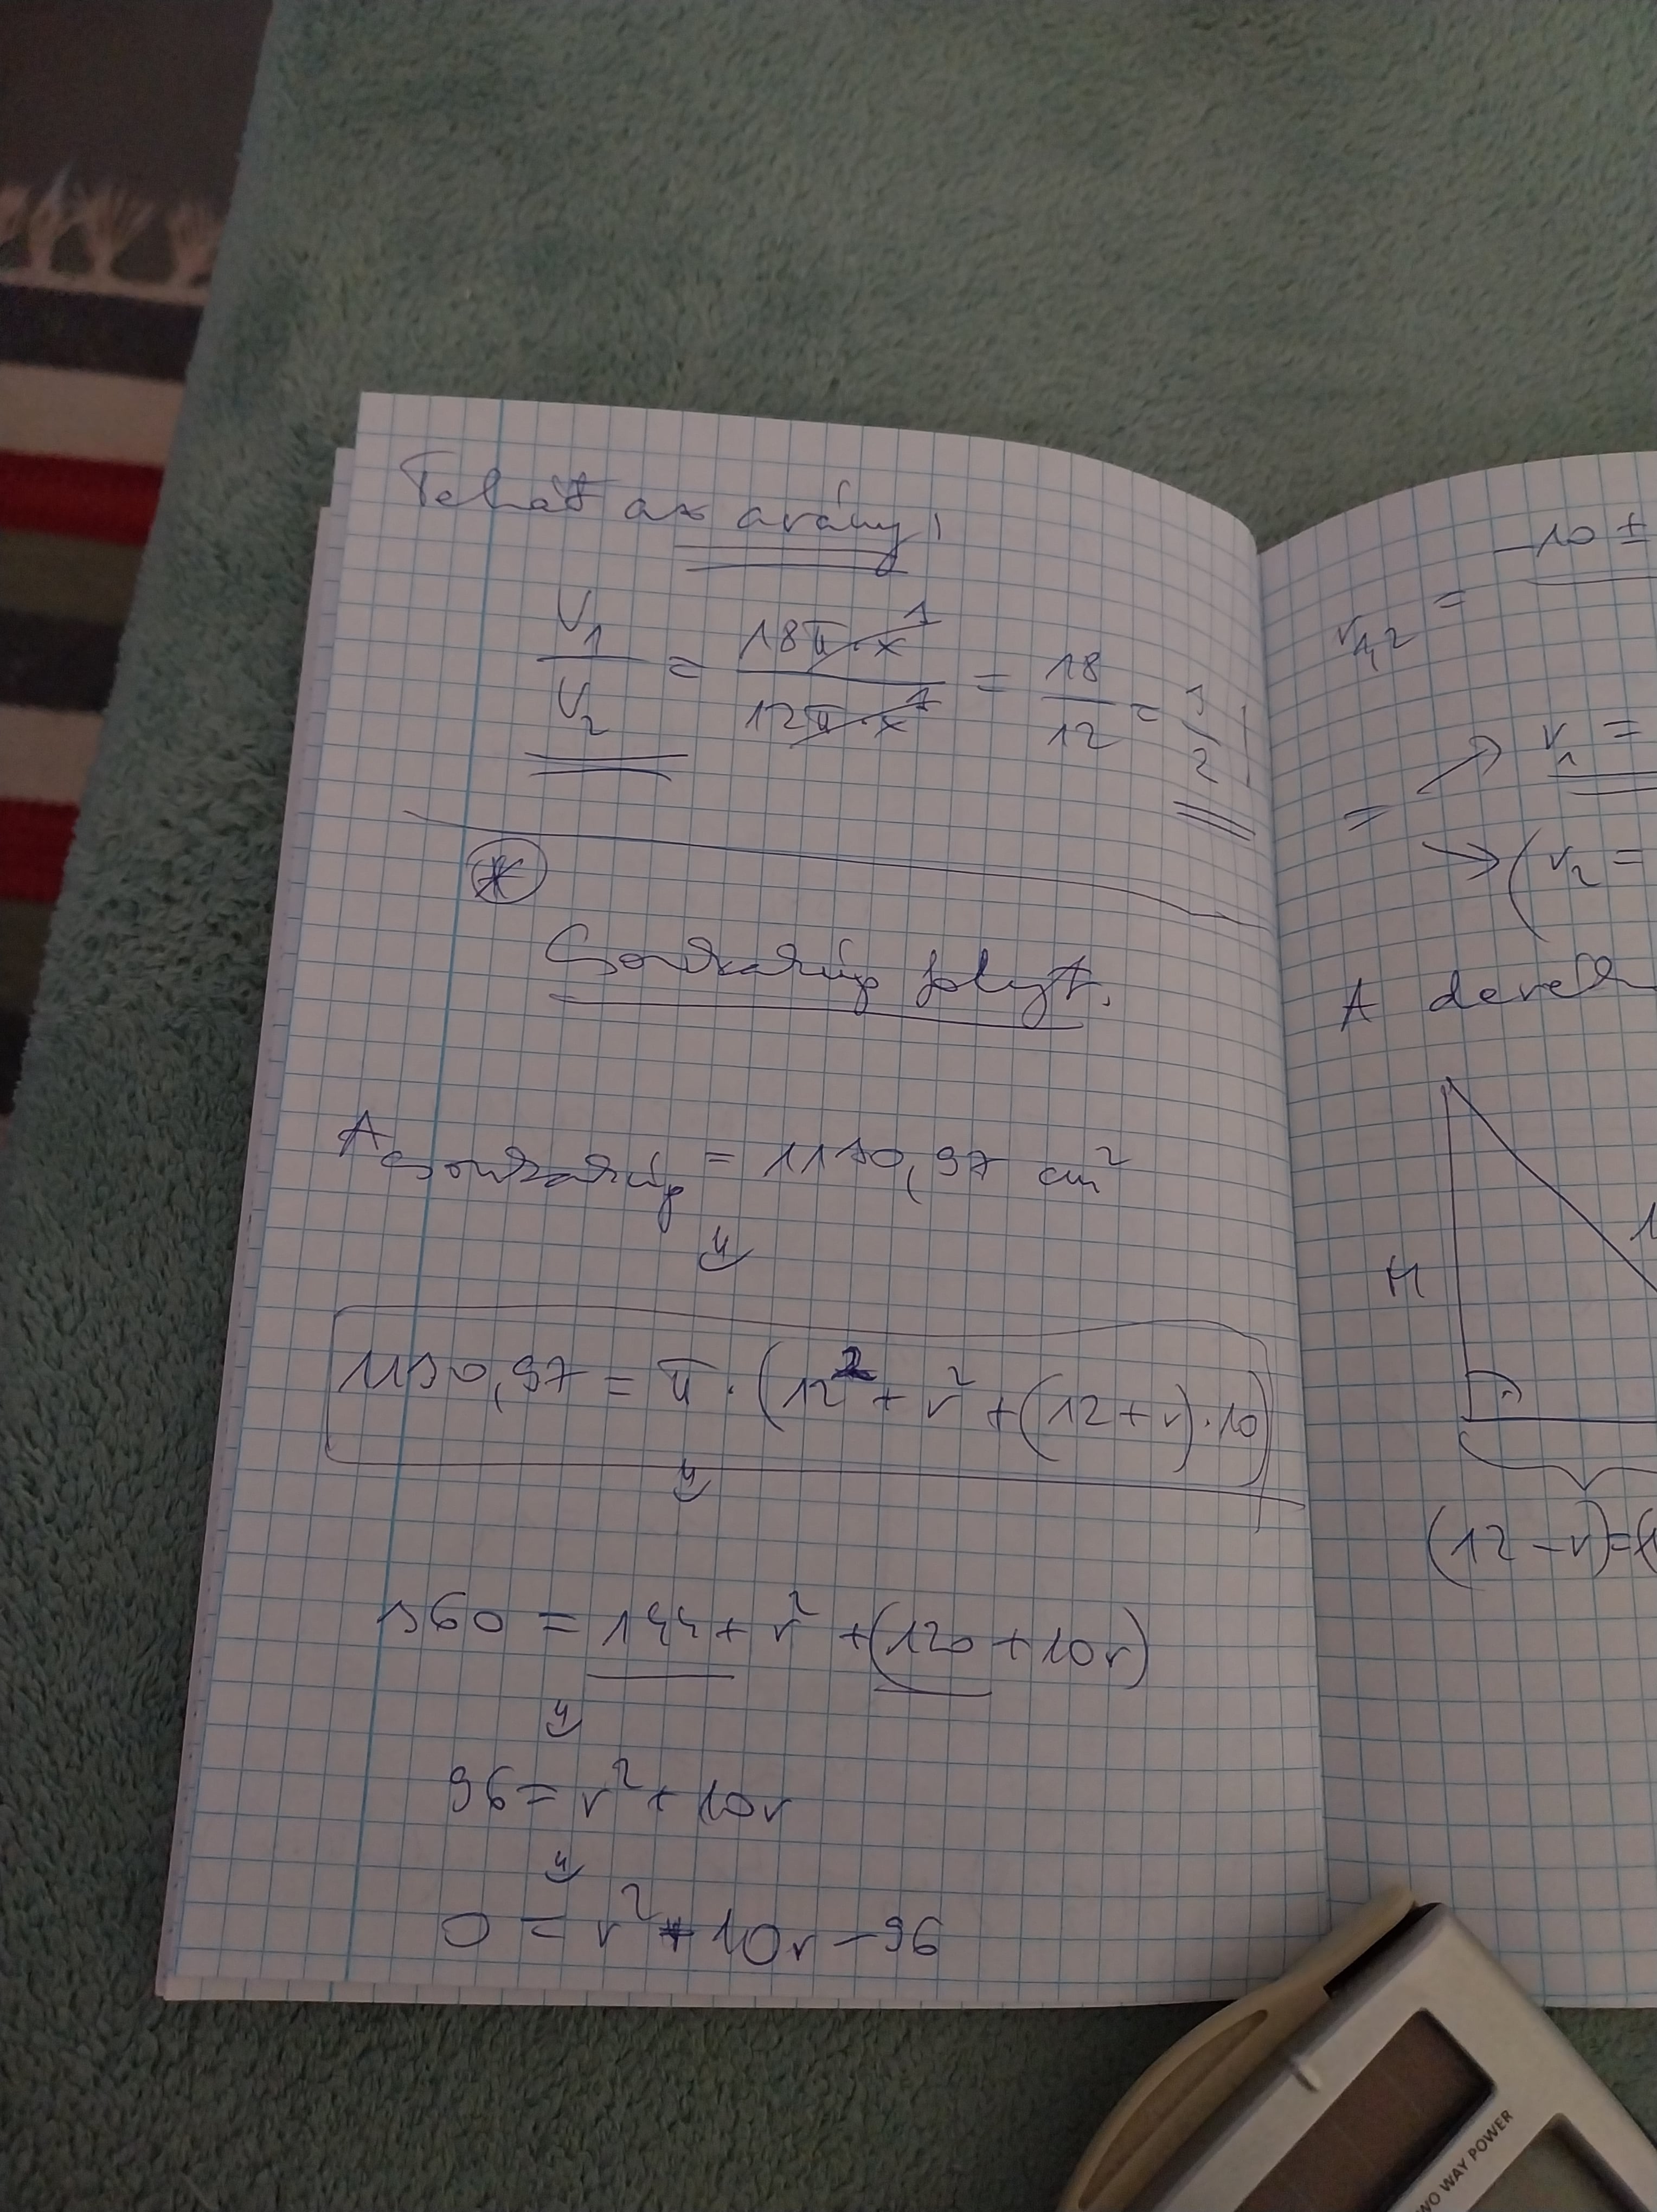 Tehát az arány!
V₁/V₂ = 18π·x¹/12π·x¹ = 18/12 = 3/2
*
Csonkakúp folyt.
A csonkakúp = 1130,97 cm²
1130,97 = π·(12² + r² + (12+r)·10)
360 = 144 + r² + (120 + 10r)
96 = r² + 10r
0 = r² + 10r - 96
r₁,₂ = -10 ±
= → r₁ =
→ (r₂ =
A
H
(12-r)=(
WO WAY POWER